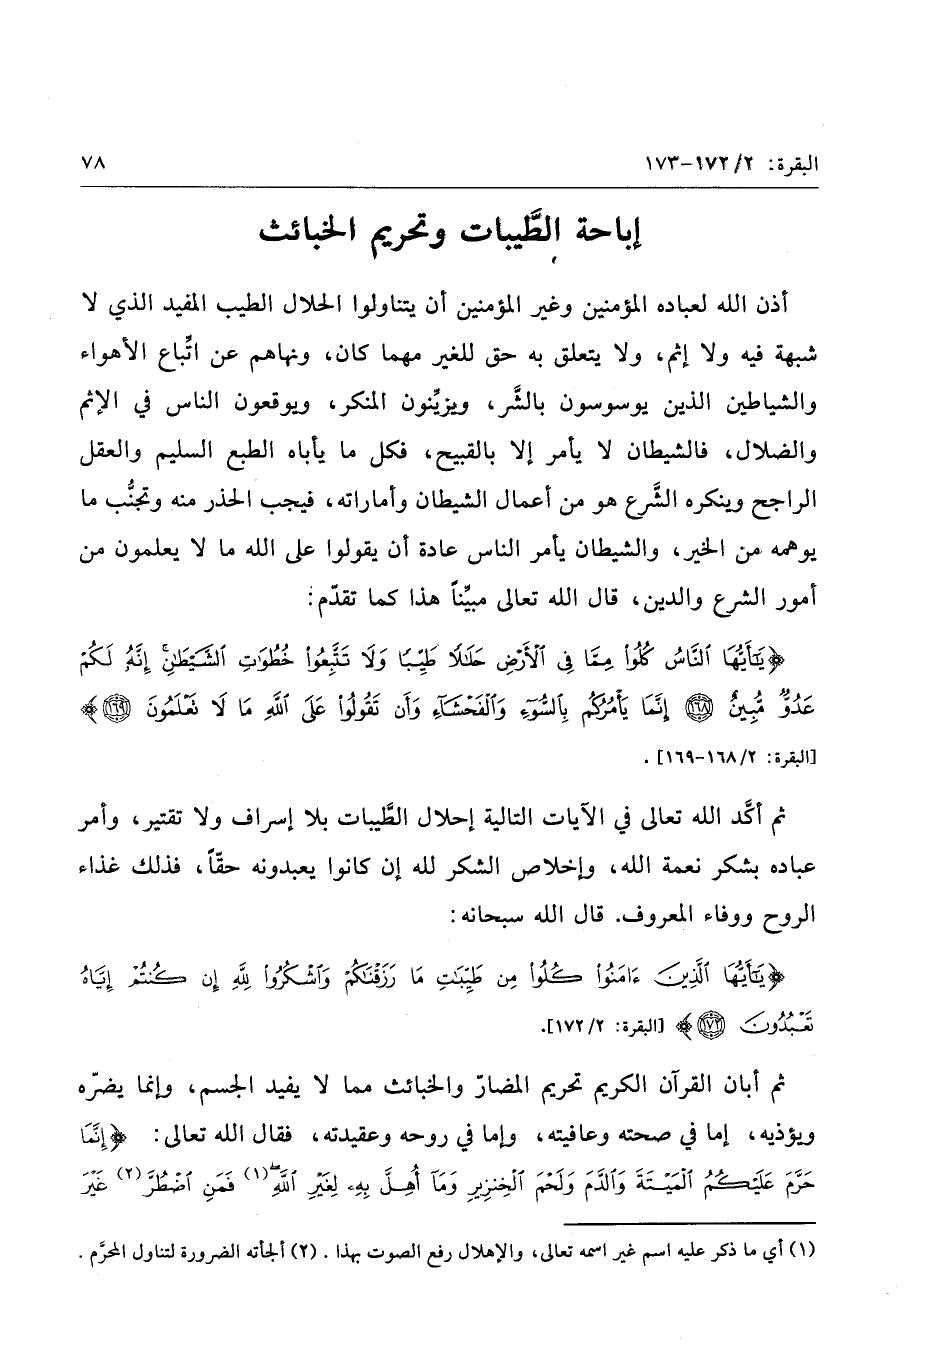 البقرة: ٢/ ١٧٢-١٧٣ ٧٨
إباحة الطَّيبات وتحريم الخبائث
أذن الله لعباده المؤمنين وغير المؤمنين أن يتناولوا الحلال الطيب المفيد الذي لا
شبهة فيه ولا إثم، ولا يتعلق به حق للغير مهما كان، ونهاهم عن اتِّباع الأهواء
والشياطين الذين يوسوسون بالشَّر، ويزيِّنون المنكر، ويوقعون الناس في الإثم
والضلال، فالشيطان لا يأمر إلا بالقبيح، فكل ما يأباه الطبع السليم والعقل
الراجح وينكره الشَّرع هو من أعمال الشيطان وأماراته، فيجب الحذر منه وتجنُّب ما
يوهمه من الخير، والشيطان يأمر الناس عادة أن يقولوا على الله ما لا يعلمون من
أمور الشرع والدين، قال الله تعالى مبيِّناً هذا كما تقدّم:
﴿يَٰٓأَيُّهَا ٱلنَّاسُ كُلُوا۟ مِمَّا فِى ٱلْأَرْضِ حَلَٰلًا طَيِّبًا وَلَا تَتَّبِعُوا۟ خُطُوَٰتِ ٱلشَّيْطَٰنِ ۚ إِنَّهُۥ لَكُمْ
عَدُوٌّ مُّبِينٌ ١٦٨ إِنَّمَا يَأْمُرُكُم بِٱلسُّوٓءِ وَٱلْفَحْشَآءِ وَأَن تَقُولُوا۟ عَلَى ٱللَّهِ مَا لَا تَعْلَمُونَ ١٦٩﴾
[البقرة: ٢/ ١٦٨-١٦٩] .
ثم أكَّد الله تعالى في الآيات التالية إحلال الطَّيبات بلا إسراف ولا تقتير، وأمر
عباده بشكر نعمة الله، وإخلاص الشكر لله إن كانوا يعبدونه حقّاً، فذلك غذاء
الروح ووفاء المعروف. قال الله سبحانه:
﴿يَٰٓأَيُّهَا ٱلَّذِينَ ءَامَنُوا۟ كُلُوا۟ مِن طَيِّبَٰتِ مَا رَزَقْنَٰكُمْ وَٱشْكُرُوا۟ لِلَّهِ إِن كُنتُمْ إِيَّاهُ
تَعْبُدُونَ ١٧٢﴾ [البقرة: ٢/ ١٧٢].
ثم أبان القرآن الكريم تحريم المضارّ والخبائث مما لا يفيد الجسم، وإنما يضرّه
ويؤذيه، إما في صحته وعافيته، وإما في روحه وعقيدته، فقال الله تعالى: ﴿إِنَّمَا
حَرَّمَ عَلَيْكُمُ ٱلْمَيْتَةَ وَٱلدَّمَ وَلَحْمَ ٱلْخِنزِيرِ وَمَآ أُهِلَّ بِهِۦ لِغَيْرِ ٱللَّهِ ۖ (١) فَمَنِ ٱضْطُرَّ (٢) غَيْرَ
(١) أي ما ذكر عليه اسم غير اسمه تعالى، والإهلال رفع الصوت بهذا . (٢) ألجأته الضرورة لتناول المحرَّم .